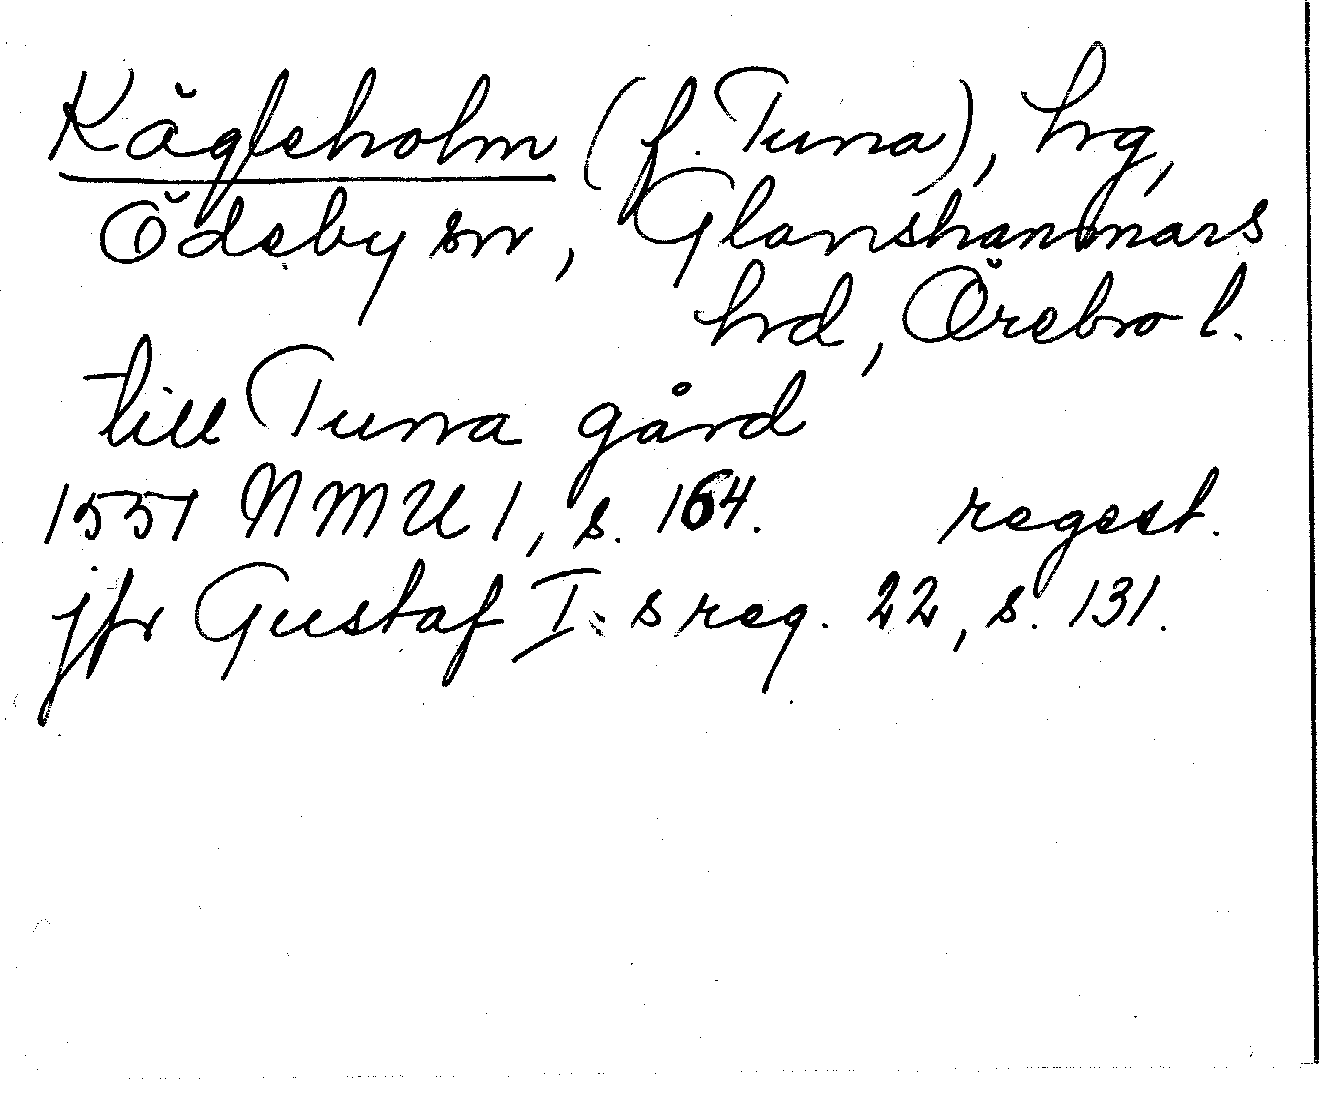 Kägleholm (f. Tuna), hg,
Ödeby sn, Glanshammars
hd, Örebro l.
till Tuna gård
1551 NMU 1, s. 164. regest.
jfr Gustaf I:s reg. 22, s. 131.